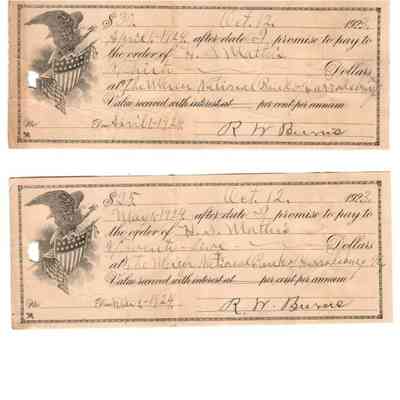 $30 Oct. 12, 1923
April 1-1924 after date I promise to pay to
the order of H. S. Mathis
Dollars
at The Mercer National Bank
Value received with interest at per cent per annum
No Due April 1-1924 R. W. Burns
$25 Oct. 12, 1923
May 1-1924 after date I promise to pay to
the order of H. S. Mathis
Twenty-five Dollars
at The Mercer National Bank
Value received with interest at per cent per annum
No Due May 1-1924 R. W. Burns